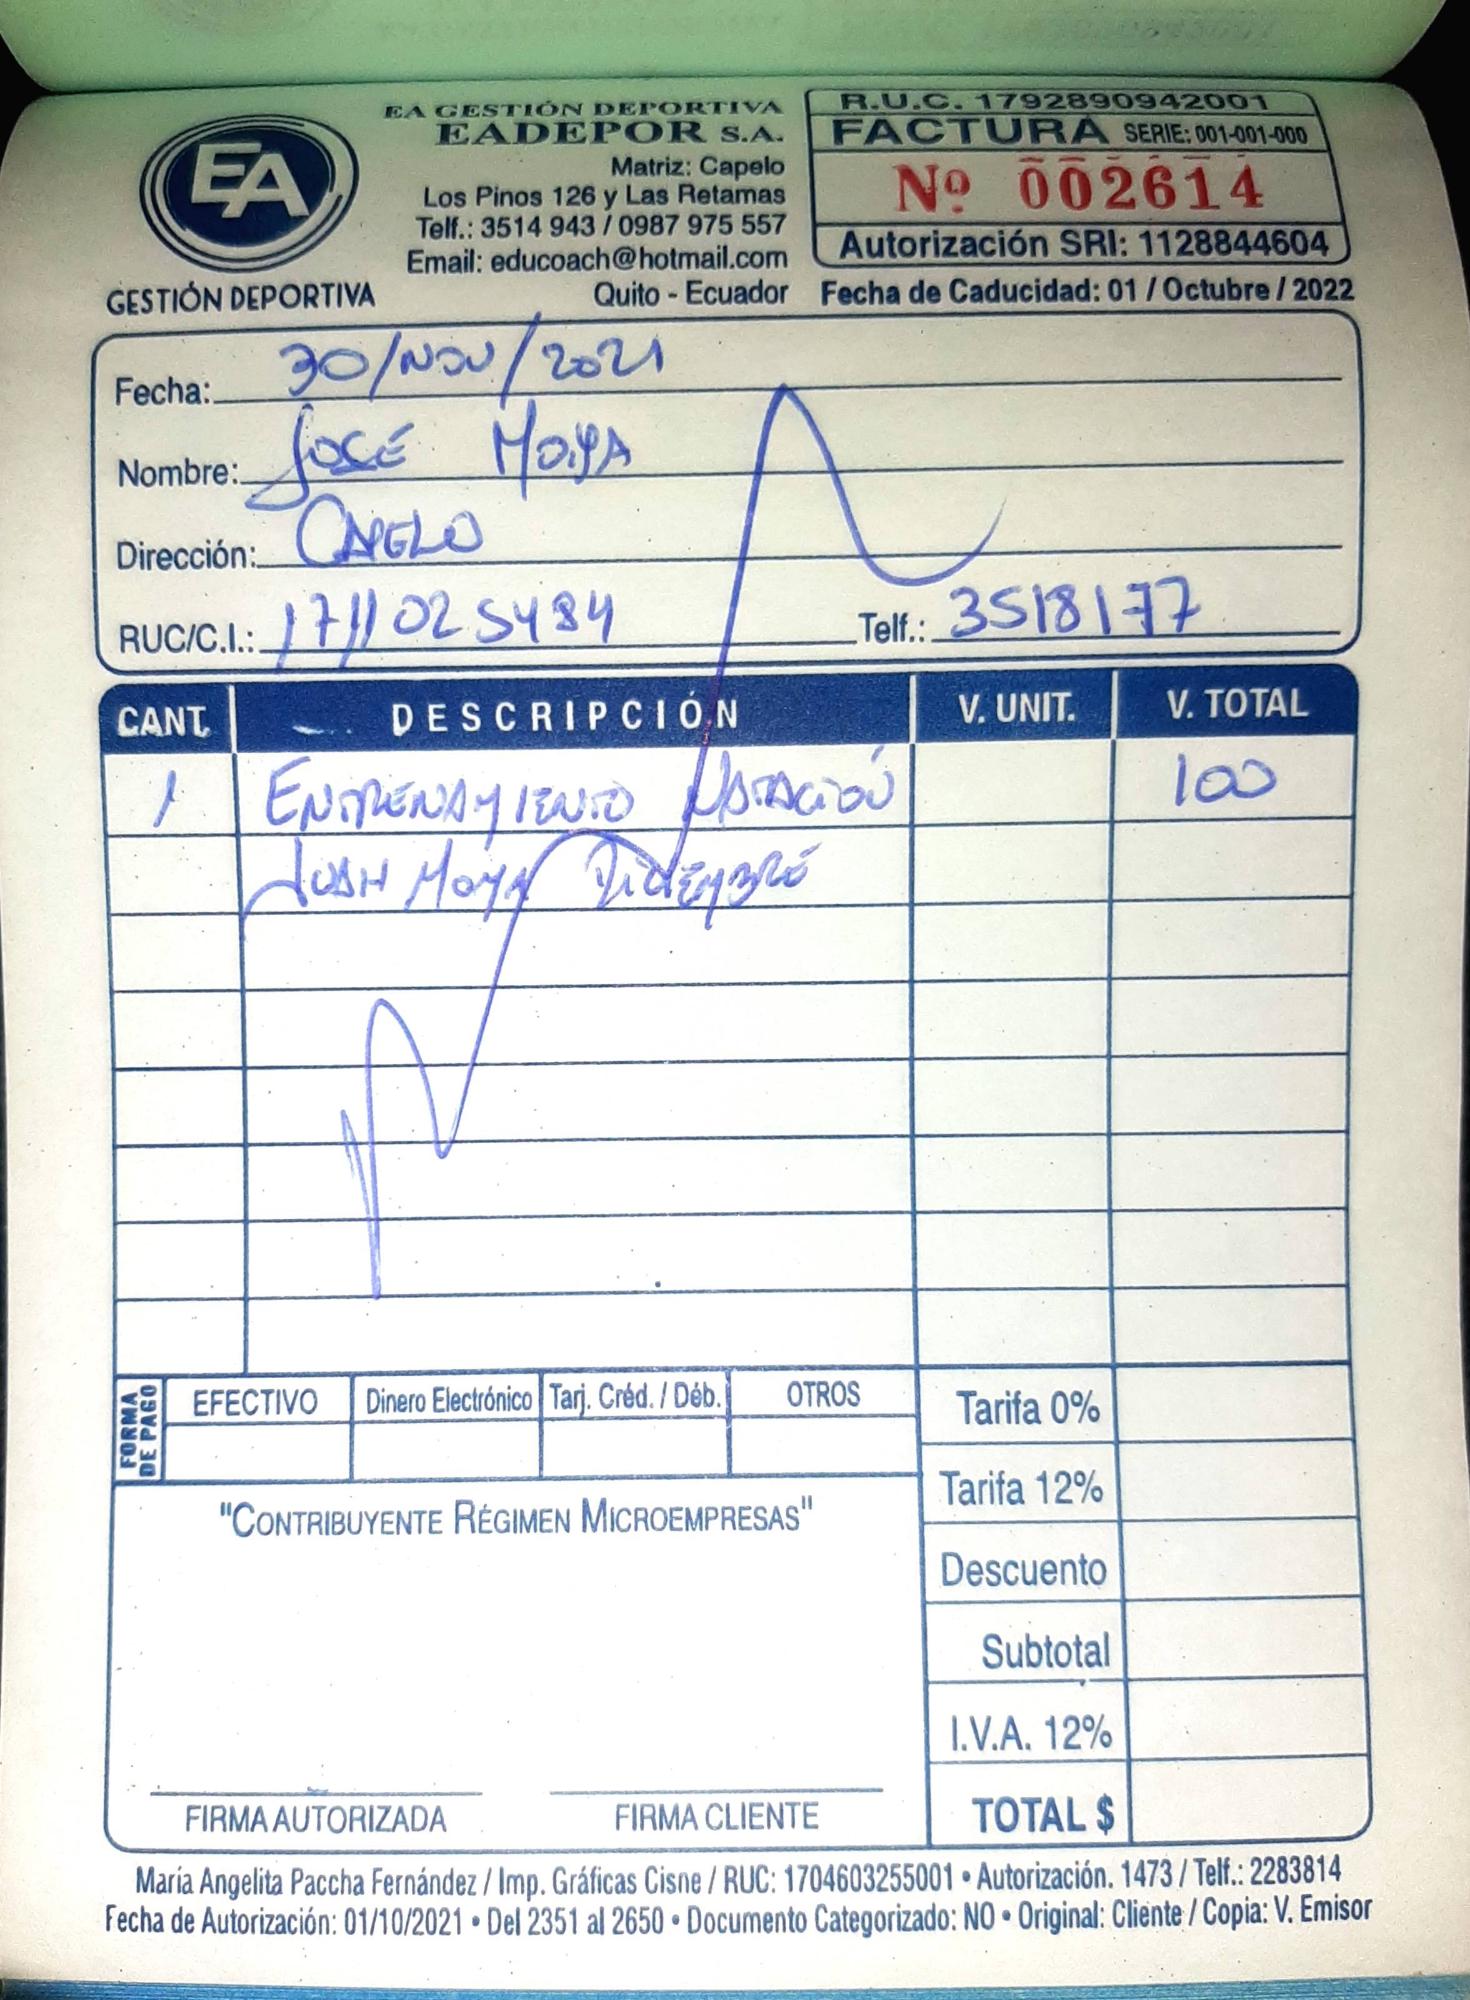 EA
GESTIÓN DEPORTIVA
EA GESTIÓN DEPORTIVA
EADEPOR S.A.
Matriz: Capelo
Los Pinos 126 y Las Retamas
Telf.: 3514 943 / 0987 975 557
Email: educoach@hotmail.com
Quito - Ecuador
R.U.C. 1792890942001
FACTURA SERIE: 001-001-000
Nº 002614
Autorización SRI: 1128844604
Fecha de Caducidad: 01 / Octubre / 2022
Fecha: 30/NOV/2021
Nombre: JOSÉ MOYA
Dirección: CAPELO
RUC/C.I.: 1711025484 Telf.: 3518177
CANT. DESCRIPCIÓN V. UNIT. V. TOTAL
1 ENTRENAMIENTO NATACIÓN 100
JUAN MOYA DICIEMBRE
FORMA DE PAGO
EFECTIVO Dinero Electrónico Tarj. Créd. / Déb. OTROS
Tarifa 0%
Tarifa 12%
"CONTRIBUYENTE RÉGIMEN MICROEMPRESAS"
Descuento
Subtotal
I.V.A. 12%
FIRMA AUTORIZADA FIRMA CLIENTE TOTAL $
María Angelita Paccha Fernández / Imp. Gráficas Cisne / RUC: 1704603255001 • Autorización. 1473 / Telf.: 2283814
Fecha de Autorización: 01/10/2021 • Del 2351 al 2650 • Documento Categorizado: NO • Original: Cliente / Copia: V. Emisor